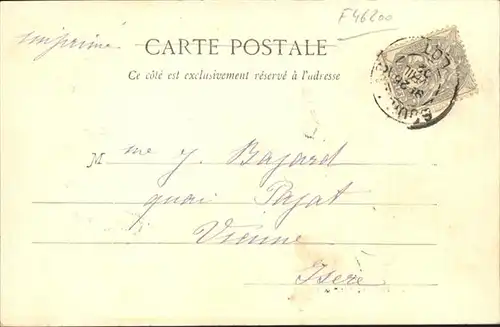 F46200
imprimé
CARTE POSTALE
Ce côté est exclusivement réservé à l'adresse
LOT
Mme J. Bajard
quai Pajot
Vienne
Isere